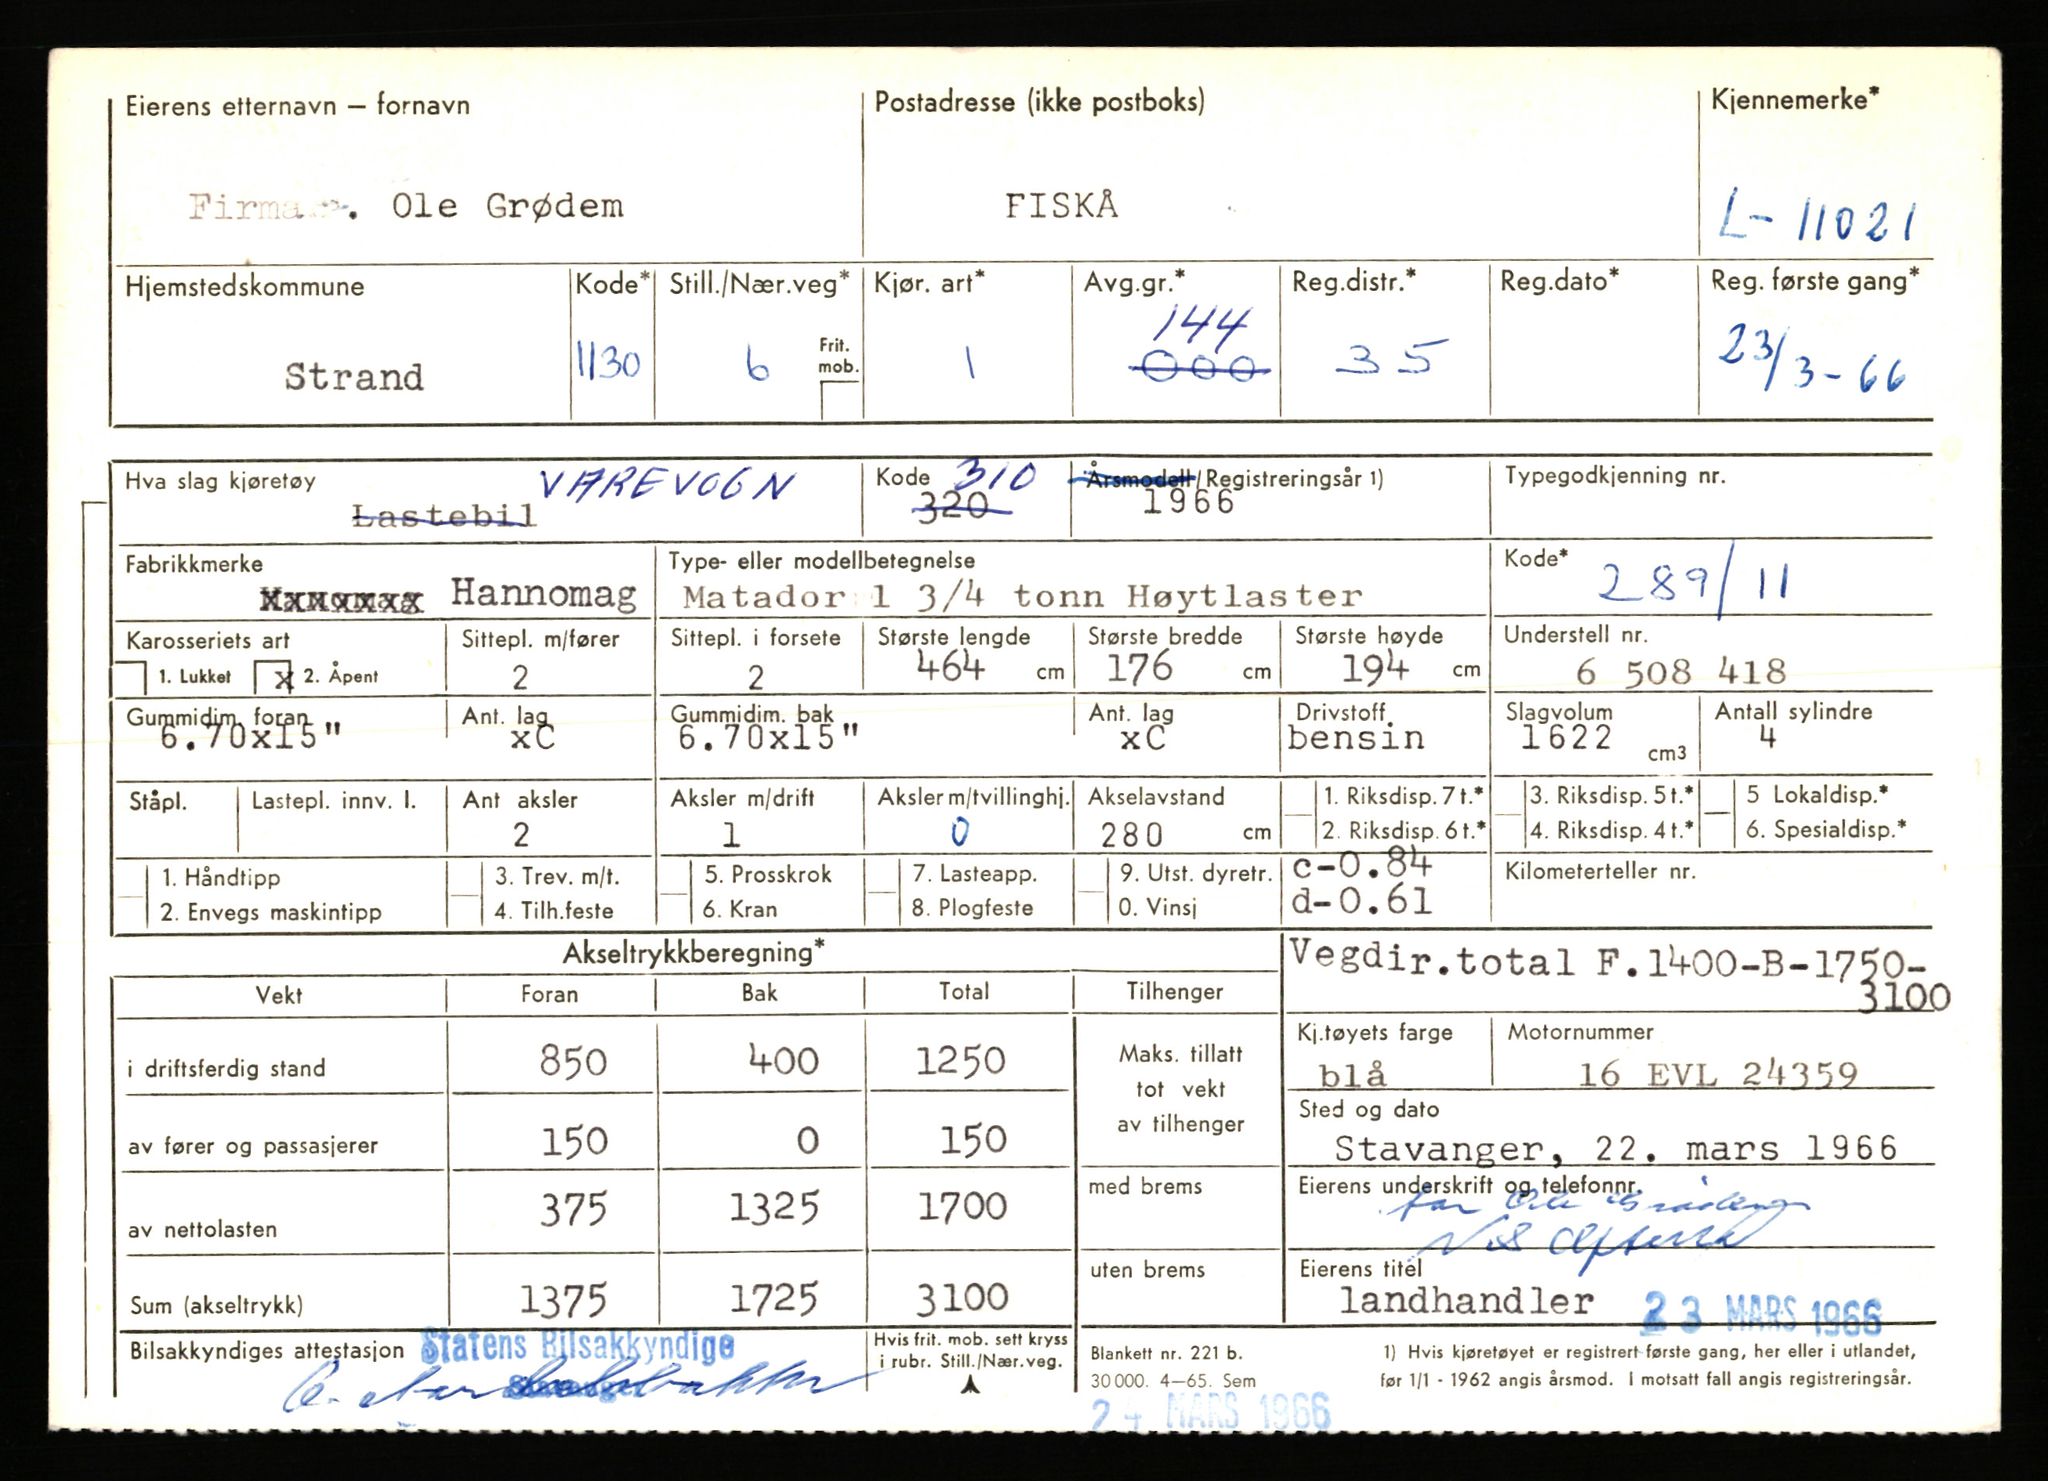 Eierens etternavn – fornavn
Postadresse (ikke postboks)
Kjennemerke*
Firma Ole Grødem
FISKÅ
L- 11021
Hjemstedskommune
Kode*
Still./Nær.veg*
Kjør. art*
Avg.gr.*
Reg.distr.*
Reg.dato*
Reg. første gang*
Strand
1130
6
Frit. mob.
1
144
000
35
23/3-66
Hva slag kjøretøy
VAREVOGN
Lastebil
Kode 310
320
Årsmodell/Registreringsår 1)
1966
Typegodkjenning nr.
Fabrikkmerke
Hannomag
Type- eller modellbetegnelse
Matador 1 3/4 tonn Høytlaster
Kode*
289/11
Karosseriets art
1. Lukket x 2. Åpent
Sittepl. m/fører
2
Sittepl. i forsete
2
Største lengde
464 cm
Største bredde
176 cm
Største høyde
194 cm
Understell nr.
6 508 418
Gummidim. foran
6.70x15"
Ant. lag
xC
Gummidim. bak
6.70x15"
Ant. lag
xC
Drivstoff
bensin
Slagvolum
1622 cm3
Antall sylindre
4
Ståpl.
Lastepl. innv. l.
Ant aksler
2
Aksler m/drift
1
Aksler m/tvillinghj.
0
Akselavstand
280 cm
1. Riksdisp. 7 t.*
2. Riksdisp. 6 t.*
3. Riksdisp. 5 t.*
4. Riksdisp. 4 t.*
5 Lokaldisp.*
6. Spesialdisp.*
1. Håndtipp
2. Envegs maskintipp
3. Trev. m/t.
4. Tilh.feste
5. Prosskrok
6. Kran
7. Lasteapp.
8. Plogfeste
9. Utst. dyretr.
0. Vinsj
c-0.84
d-0.61
Kilometerteller nr.
Akseltrykkberegning*
Vegdir.total F.1400-B-1750-
3100
Vekt
Foran
Bak
Total
Tilhenger
i driftsferdig stand
850
400
1250
Maks. tillatt
tot vekt
av tilhenger
Kj.tøyets farge
blå
Motornummer
16 EVL 24359
av fører og passasjerer
150
0
150
Sted og dato
Stavanger, 22. mars 1966
av nettolasten
375
1325
1700
med brems
Eierens underskrift og telefonnr.
for Ole Grødem
Sum (akseltrykk)
1375
1725
3100
uten brems
Eierens titel
landhandler
23 MARS 1966
Bilsakkyndiges attestasjon
Statens Bilsakkyndige
Stavanger
Hvis frit. mob. sett kryss
i rubr. Still./Nær.veg.
Blankett nr. 221 b.
30 000. 4–65. Sem
1) Hvis kjøretøyet er registrert første gang, her eller i utlandet,
før 1/1 - 1962 angis årsmod. I motsatt fall angis registreringsår.
24 MARS 1966